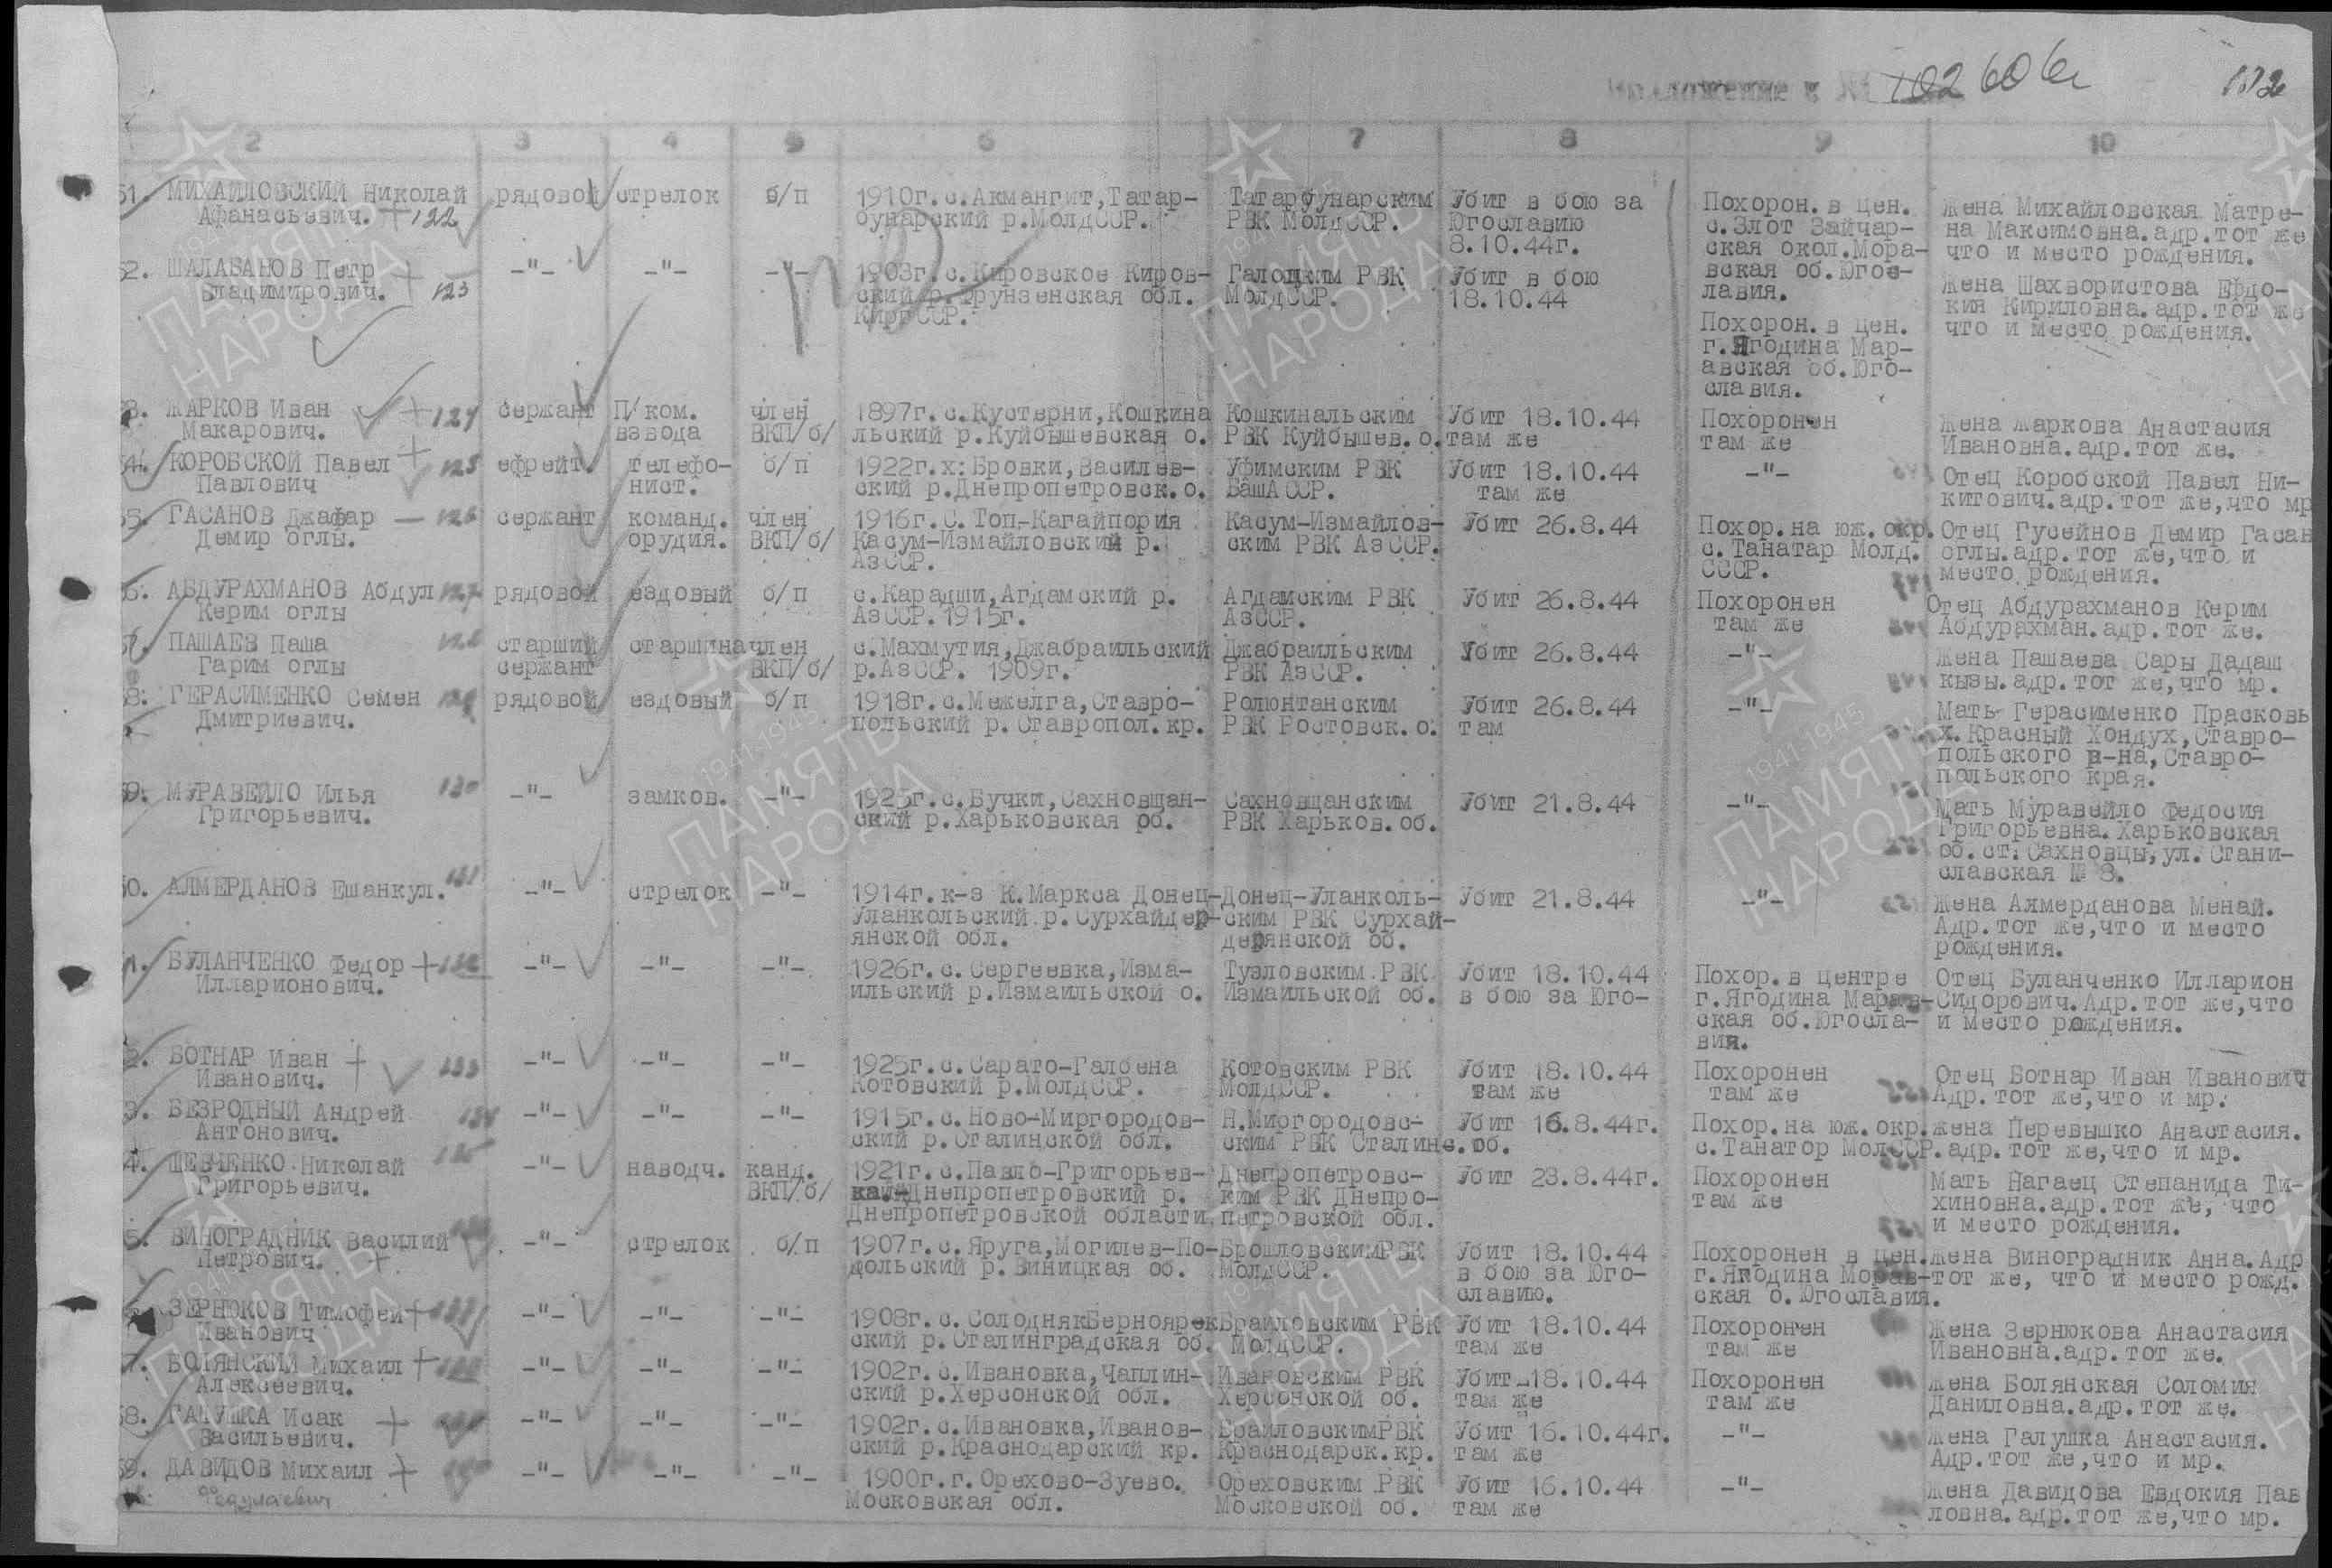 Приложение к № 102606с
2 3 4 5 6 7 8 9 10
51. МИХАЙЛОВСКИЙ Николай рядовой стрелок б/п 1910г.с.Акмангит,Татар- Татарбунарским Убит в бою за Похорон.в цен. Жена Михайловская Матре-
Афанасьевич. +122 бунарский р.МолдССР. РВК МолдССР. Югославию с.Злот Зайчар- на Максимовна.адр.тот же
8.10.44г. ская окол.Мора- что и место рождения.
вская об.Югос-
лавия.
52. ШАЛАБАНОВ Петр -"- -"- -"- 1903г.с.Кировское Киров- Галоцким РВК Убит в бою Похорон.в цен. Жена Шахвористова Ефдо-
Владимирович. + 123 ский р.Фрунзенская обл. МолдССР. 18.10.44 г.Ягодина Мар- кия Кириловна.адр.тот же
КиргССР. авская об.Юго- что и место рождения.
славия.
53. ЖАРКОВ Иван +124 сержант П/ком. член 1897г.с.Кустерни,Кошкина Кошкинальским Убит 18.10.44 Похоронен Жена Жаркова Анастасия
Макарович. взвода ВКП/б/ льский р.Куйбышевская о. РВК Куйбышев.о. там же там же Ивановна.адр.тот же.
54. КОРОБСКОЙ Павел + 125 ефрейт. телефо- б/п 1922г.х:Бровки,Василев- Уфимским РВК Убит 18.10.44 -"- Отец Коробской Павел Ни-
Павлович нист. ский р.Днепропетровск.о. БашАССР. там же китович.адр.тот же,что мр
55. ГАСАНОВ Джафар — 126 сержант команд. член 1916г.С.Топ-Кагайпория Касум-Измайлов- Убит 26.8.44 Похор.на юж.окр. Отец Гусейнов Демир Гасан
Демир оглы. орудия. ВКП/б/ Касум-Измайловский р. ским РВК АзССР. с.Танатар Молд. оглы.адр.тот же,что и
АзССР. СССР. место рождения.
56. АБДУРАХМАНОВ Абдул 127 рядовой ездовый б/п с.Карадши,Агдамский р. Агдамским РВК Убит 26.8.44 Похоронен Отец Абдурахманов Керим
Керим оглы АзССР.1915г. АзССР. там же Абдурахман.адр.тот же.
57. ПАШАЕВ Паша 128 старший старшина член с.Махмутия,Джабраильский Джабраильским Убит 26.8.44 -"- Жена Пашаева Сары Дадаш
Гарим оглы сержант ВКП/б/ р.АзССР. 1909г. РВК АзССР. кызы.адр.тот же,что мр.
58. ГЕРАСИМЕНКО Семен 129 рядовой ездовый б/п 1918г.с.Межелга,Ставро- Ролюнтанским Убит 26.8.44 -"- Мать Герасименко Прасковь
Дмитриевич. польский р.Ставропол.кр. РВК Ростовск.о. там х.Красный Хондух,Ставро-
польского р-на,Ставро-
польского края.
59. МУРАВЕЙЛО Илья 130 -"- замков. -"- 1925г.с.Бучки,Сахновщан- Сахновщанским Убит 21.8.44 -"- Мать Муравейло Федосия
Григорьевич. ский р.Харьковская об. РВК Харьков.об. Григорьевна.Харьковская
об.ст.Сахновцы,ул.Стани-
славская № 8.
60. АЛМЕРДАНОВ Ешанкул. 131 -"- стрелок -"- 1914г.к-з К.Маркса Донец- Донец-Уланколь- Убит 21.8.44 -"- Жена Алмерданова Менай.
Уланкольский р.Сурхайдер- ским РВК Сурхай- Адр.тот же,что и место
янской обл. дерянской об. рождения.
61. БУЛАНЧЕНКО Федор +132 -"- -"- -"- 1926г.с.Сергеевка,Изма- Тузловским РВК Убит 18.10.44 Похор.в центре Отец Буланченко Илларион
Илларионович. ильский р.Измаильской о. Измаильской об. в бою за Юго- г.Ягодина Марав- Сидорович.Адр.тот же,что
ская об.Югосла- и место рождения.
вия.
62. БОТНАР Иван + 133 -"- -"- -"- 1925г.с.Сарато-Галбена Котовским РВК Убит 18.10.44 Похоронен Отец Ботнар Иван Иванович
Иванович. Котовский р.МолдССР. МолдССР. там же там же Адр.тот же,что и мр.
63. БЕЗРОДНЫЙ Андрей 134 -"- -"- -"- 1915г.с.Ново-Миргородов- Н.Миргородовс- Убит 16.8.44г. Похор.на юж.окр. жена Перевышко Анастасия.
Антонович. ский р.Сталинской обл. ским РВК Сталинс.об. с.Танатор МолССР. адр.тот же,что и мр.
64. ШЕВЧЕНКО Николай 135 -"- наводч. канд. 1921г.с.Павло-Григорьев- Днепропетровс- Убит 23.8.44г. Похоронен Мать Нагаец Степанида Ти-
Григорьевич. ВКП/б/ ка,Днепропетровский р. ким РВК Днепро- там же хиновна.адр.тот же, что
Днепропетровской области. петровской обл. и место рождения.
65. ВИНОГРАДНИК Василий -"- стрелок б/п 1907г.с.Яруга,Могилев-По- БрошловскимРВК Убит 18.10.44 Похоронен в цен. Жена Виноградник Анна.Адр
Петрович. + дольский р.Виницкая об. МолдССР. в бою за Юго- г.Ягодина Морав- тот же, что и место рожд.
славию. ская о.Югославия.
66. ЗЕРНЮКОВ Тимофей + -"- -"- -"- 1908г.с.СолоднякБерноярек Браиловским РВК Убит 18.10.44 Похоронен Жена Зернюкова Анастасия
Иванович ский р.Сталинградская об. МолдССР. там же там же Ивановна.адр.тот же.
67. БОЛЯНСКИЙ Михаил + -"- -"- -"- 1902г.с.Ивановка,Чаплин- Ивановским РВК Убит 18.10.44 Похоронен Жена Болянская Соломия
Алексеевич. ский р.Херсонской обл. Херсонской об. там же там же Даниловна.адр.тот же.
68. ГАЛУШКА Исак + -"- -"- -"- 1902г.с.Ивановка,Иванов- БраиловскимРВК Убит 16.10.44г. -"- Жена Галушка Анастасия.
Васильевич. ский р.Краснодарский кр. Краснодарск.кр. там же Адр.тот же,что и мр.
69. ДАВИДОВ Михаил + -"- -"- -"- 1900г.г.Орехово-Зуево. Ореховским РВК Убит 16.10.44 -"- Жена Давидова Евдокия Пав
Федулаевич Московская обл. Московской об. там же ловна.адр.тот же,что мр.
1941-1945
ПАМЯТЬ
НАРОДА